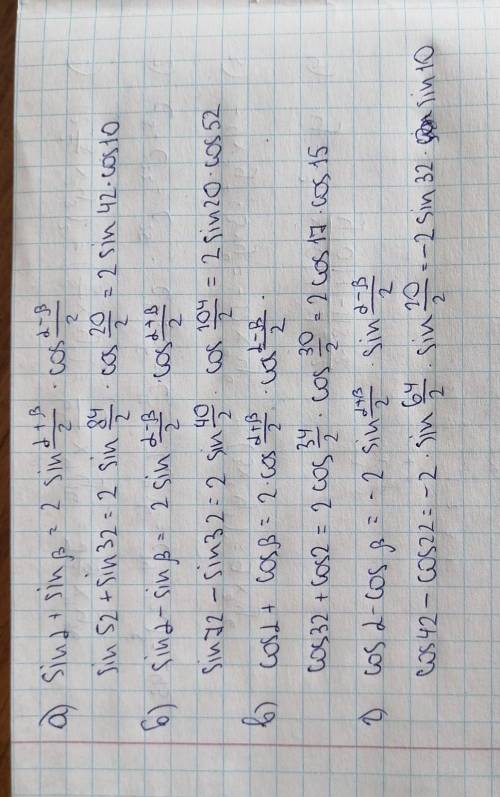 а) sinα + sinβ = 2 sin (α+β)/2 · cos (α-β)/2
sin 52 + sin 32 = 2 sin 84/2 · cos 20/2 = 2 sin 42 · cos 10
б) sinα - sinβ = 2 sin (α-β)/2 · cos (α+β)/2
sin 72 - sin 32 = 2 sin 40/2 · cos 104/2 = 2 sin 20 · cos 52
в) cosα + cosβ = 2 · cos (α+β)/2 · cos (α-β)/2 .
cos 32 + cos 2 = 2 cos 34/2 · cos 30/2 = 2 cos 17 · cos 15
г) cosα - cosβ = - 2 sin (α+β)/2 · sin (α-β)/2
cos 42 - cos 22 = - 2 · sin 64/2 · sin 20/2 = - 2 sin 32 · sin 10